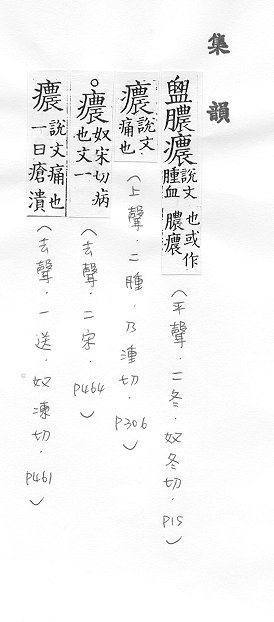 集韻
盥膿癑說文腫血也或作膿癑(平聲.二冬.奴冬切.P15)
癑說文痛也(上聲.二腫.乃湩切.P306)
。癑奴宋切病也文一(去聲.二宋.P464)
癑說文痛也一曰瘡潰(去聲.一送.奴凍切.P461)